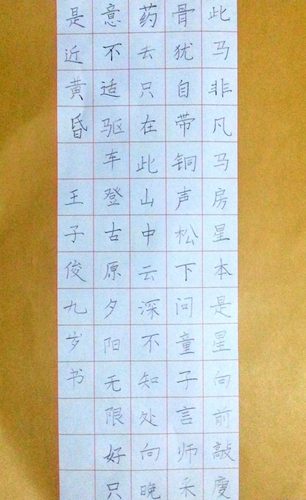 此马非凡马房星本是星向前敲瘦
骨犹自带铜声松下问童子言师采
药去只在此山中云深不知处向晚
意不适驱车登古原夕阳无限好只
是近黄昏 王子俊九岁书